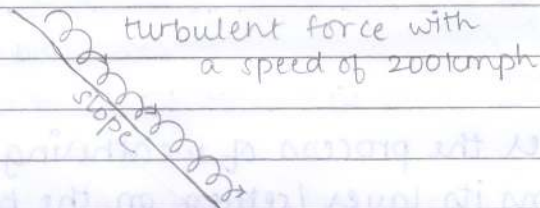 turbulent force with
a speed of 200kmph
slope